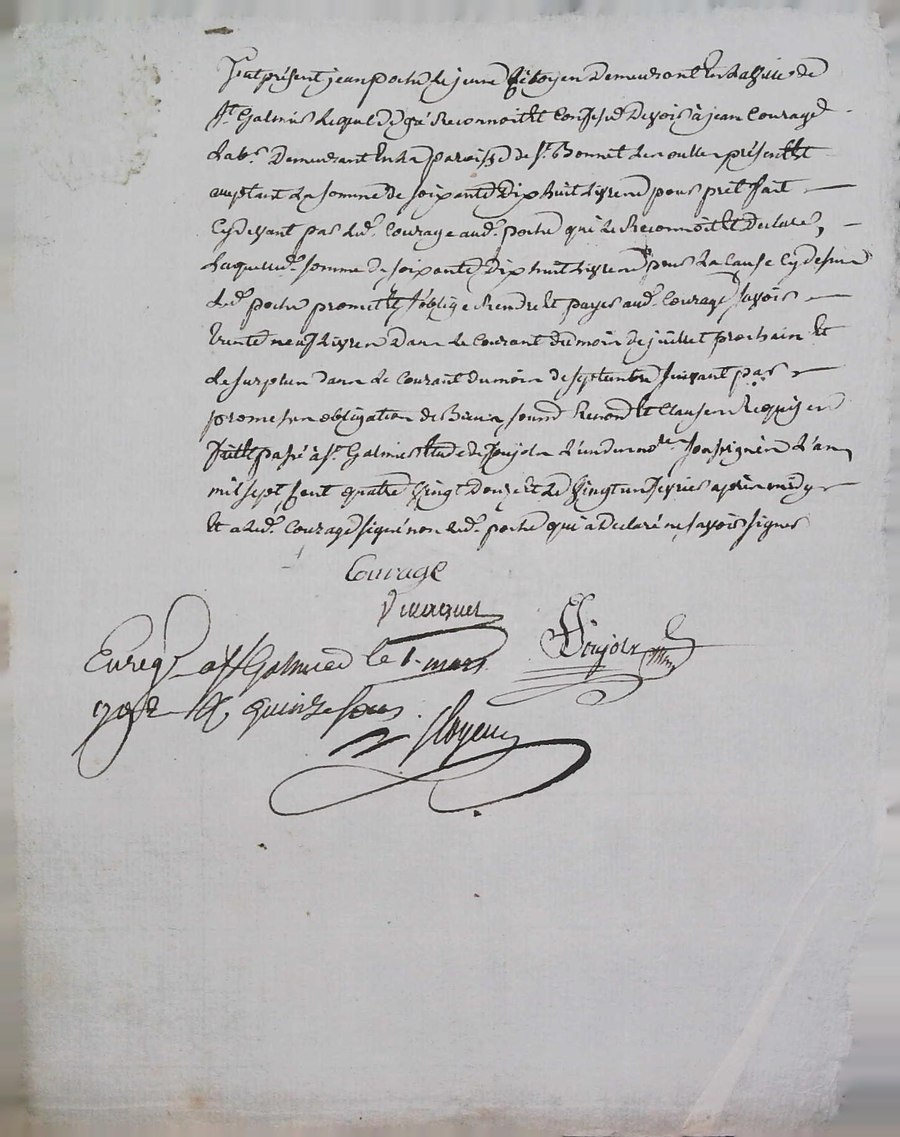 fut présent jean poche le jeune Citoyen demeurant en la ville de
St. Galmier lequel de gré Reconnoit et Confesse devoir à jean Courage
lab.r demeurant en la paroisse de St. Bonnet les oulles présent et
acceptant la somme de soixante dix huit livres pour prêt fait
Cy devant par led. Courage aud. poche qui le Reconnoit et declare,
laquelle d. somme de soixante dix huit livres pour la Cause Cy dessus
led. poche promet et s'oblige Rendre et payer aud. Courage savoir
trente neuf livres dans le Courant du mois de juillet prochain et
le surplus dans le Courant du mois de septembre suivant par
promesses obligation de Biens, soumd. Renond. et Clauses Requises
fait et passé à St. Galmier étude de Poujols l'un des no.res soussignés l'an
mil sept Cent quatre vingt douze et le vingt un fevrier après midy
et a led. Courage signé non led. poche qui a declaré ne savoir signer
Courage
Poujols
Enreg.é a St Galmier le 1. mars
1792 R quinze sous